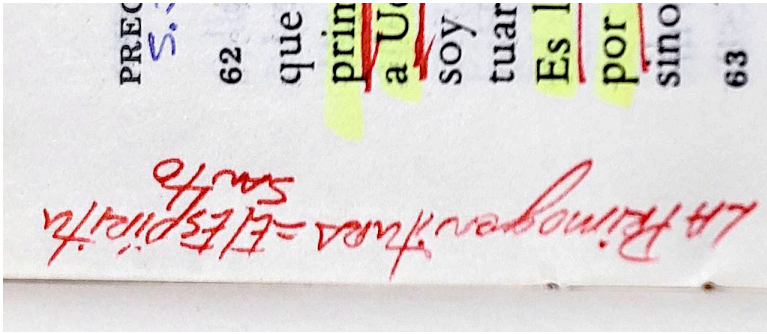 PREG
5.
62
que
prim
a U
soy
tuar
Es l
por
sino
63
LA PRimogenituRA = El EspíRitu
SAnto